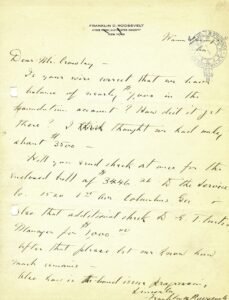 FRANKLIN D. ROOSEVELT
NEW YORK
Warm
Ga.
Dear Mr. Crowley -
Is your wire correct that we have
balance of nearly $7,000 in the
Foundation account? How did it get
there? I thought we had only
about $3500 -
Will you send check at once for the
enclosed bill of $ to the
Co. 1520 1st Ave Columbus Ga -
also that additional check to
Manager for $1000
After that please let me know how
much remains
Also how is the bond issue progressing,
Sincerely
Franklin D. Roosevelt